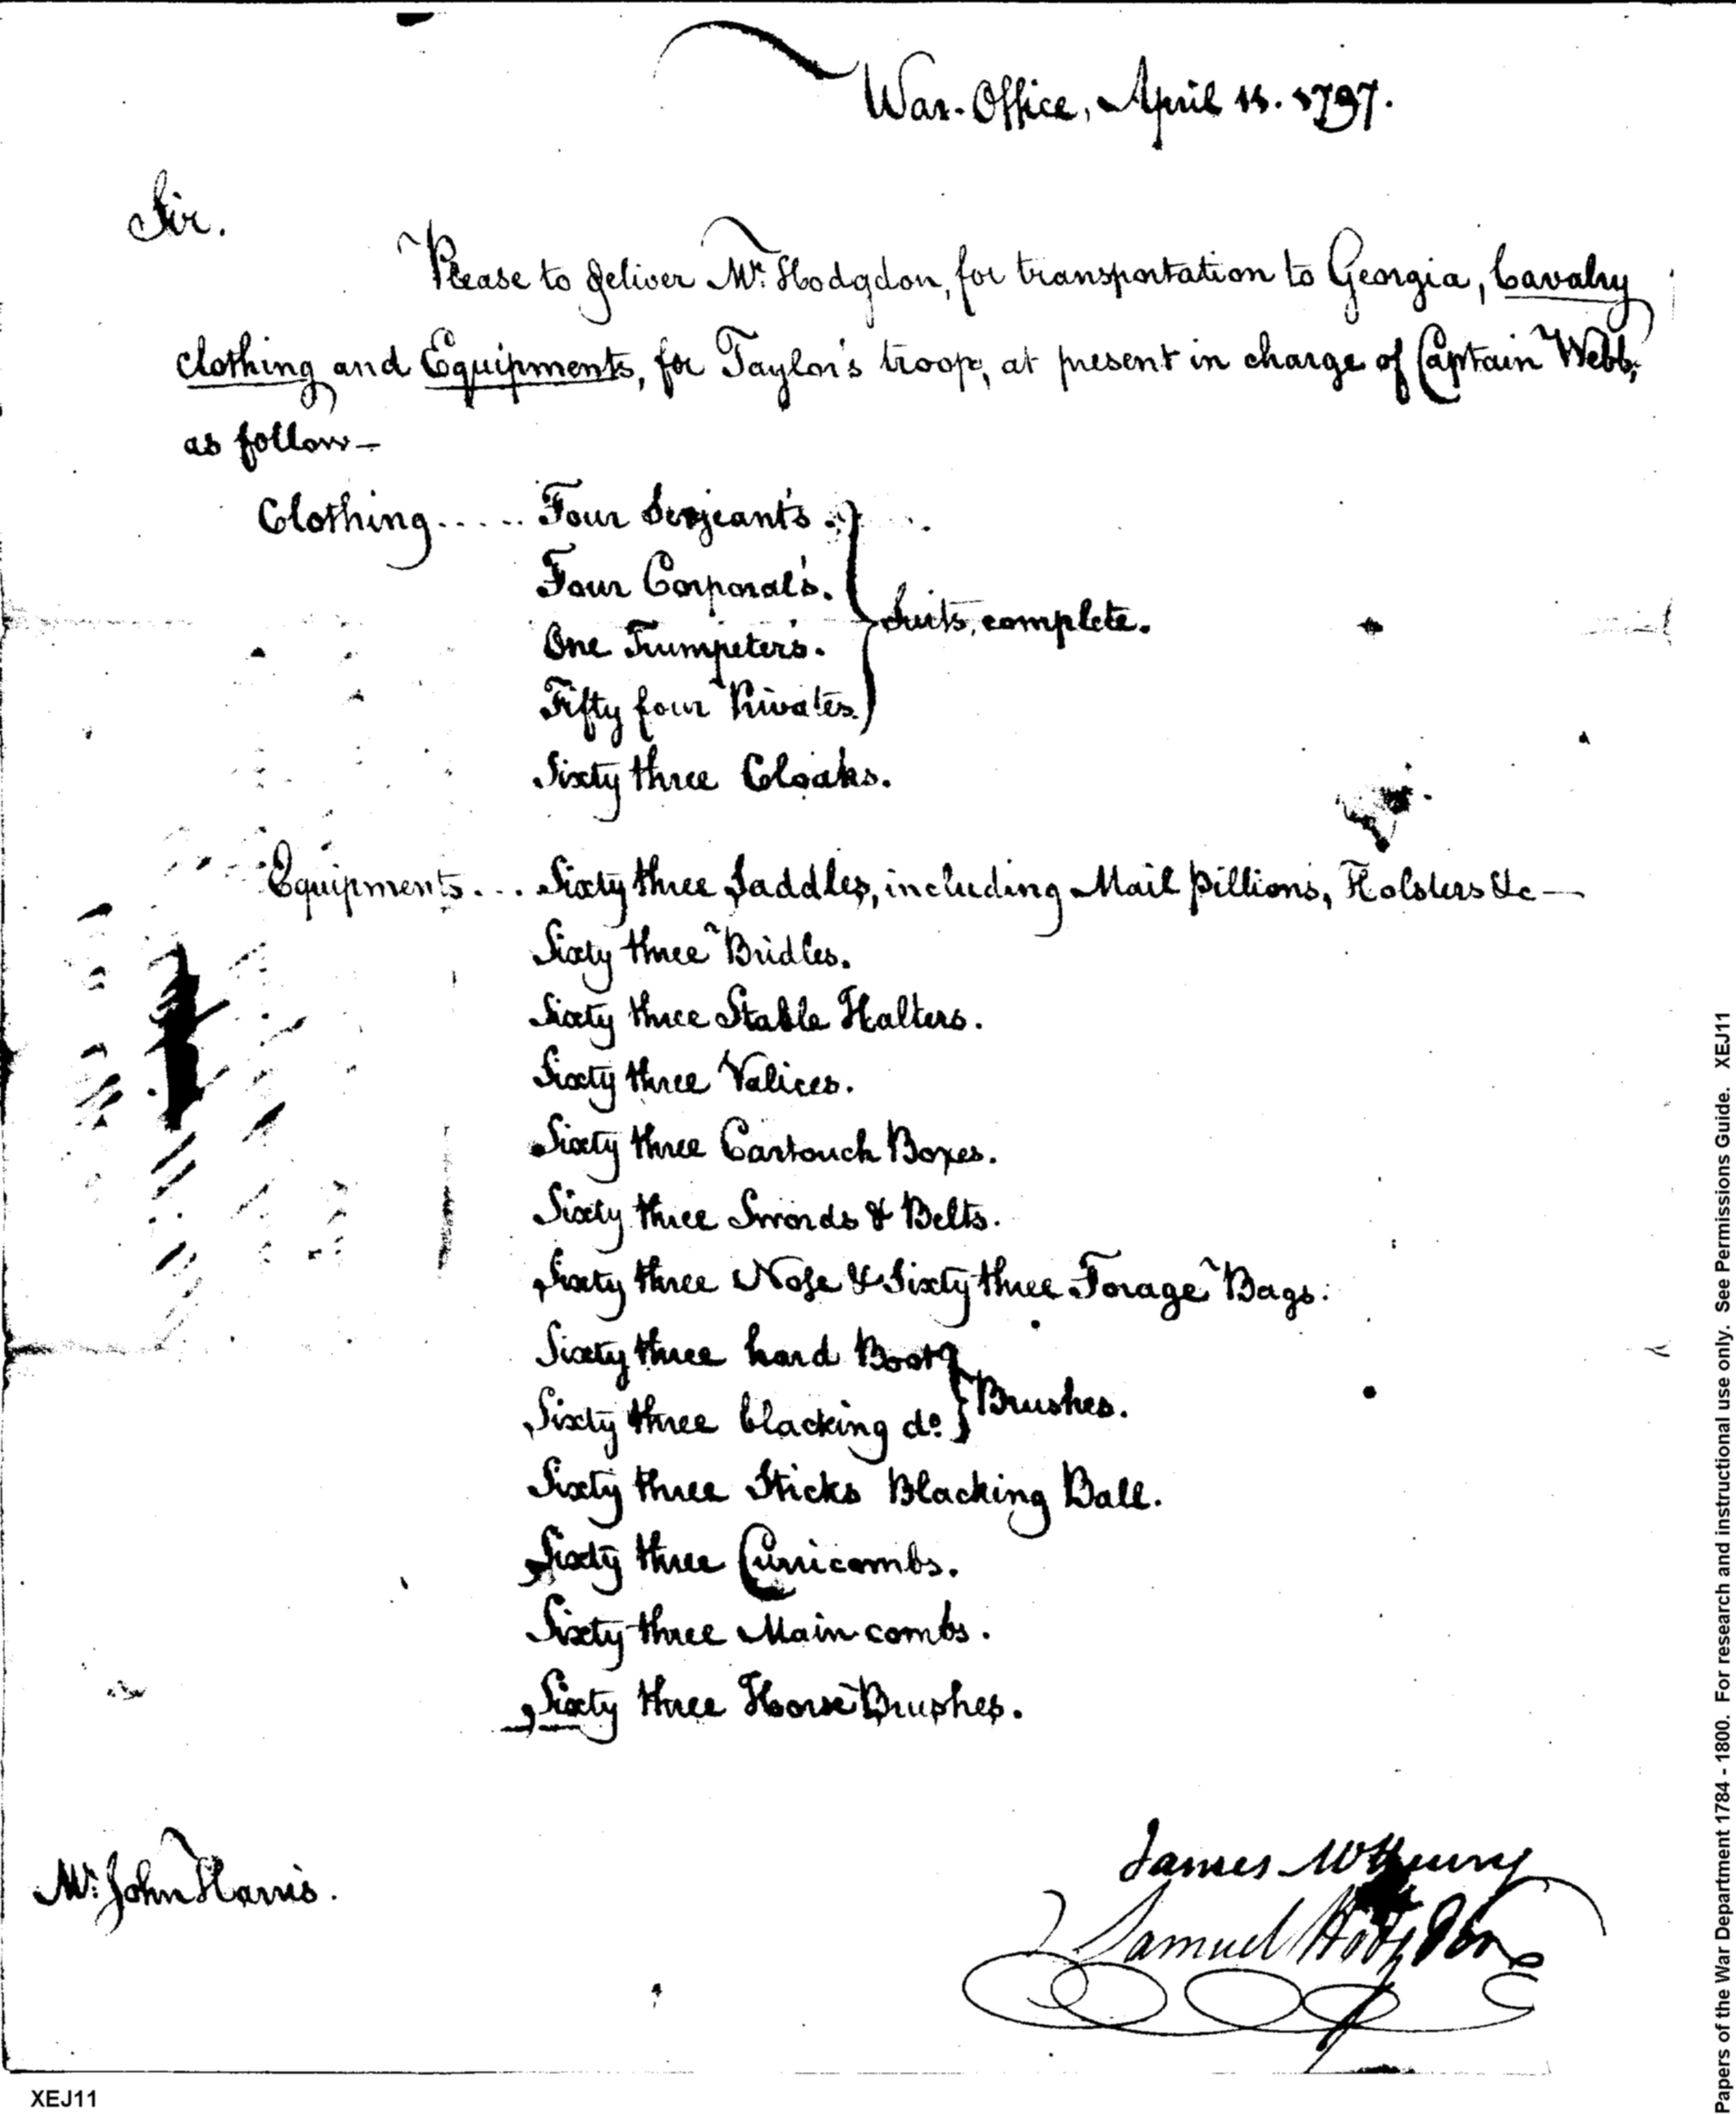 War-Office, April 11. 1797.
Sir.
Please to deliver Mr. Hodgdon, for transportation to Georgia, Cavalry
clothing and Equipments, for Taylor's troop, at present in charge of Captain Webb,
as follow—
Clothing..... Four Serjeant's.
Four Corporal's.
One Trumpeter's.
Fifty four Privates.
Suits, complete.
Sixty three Cloaks.
Equipments... Sixty three Saddles, including Mail pillions, Holsters &c—
Sixty three Bridles.
Sixty three Stable Halters.
Sixty three Valices.
Sixty three Cartouch Boxes.
Sixty three Swords & Belts.
Sixty three Nose & Sixty three Forage Bags.
Sixty three hard Boot
Sixty three blacking do.
Brushes.
Sixty three Sticks Blacking Ball.
Sixty three Curricombs.
Sixty three Main combs.
Sixty three Horse Brushes.
Mr. John Harris.
James McHenry
Samuel Hodgdon
XEJ11
Papers of the War Department 1784 - 1800. For research and instructional use only. See Permissions Guide. XEJ11